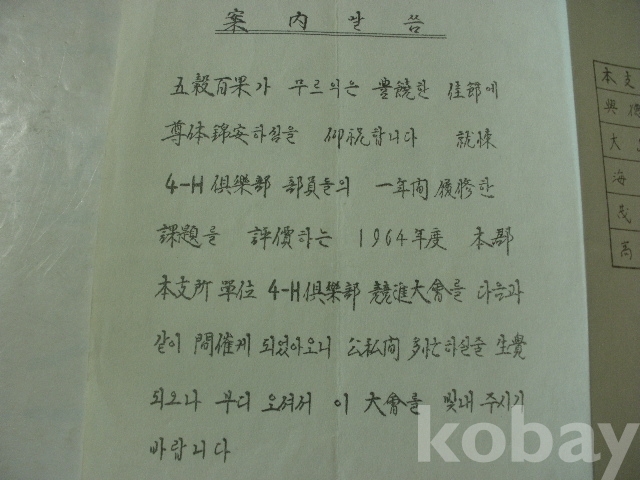 案內말씀
五穀百果가 무르익은 豊饒한 佳節에
尊体錦安하심을 仰祝합니다 就悚
4-H俱樂部 部員들의 一年間 履修한
課題를 評價하는 1964年度 本郡
本支所 單位 4-H俱樂部 競進大會를 다음과
같이 開催케 되었아오니 公私間 多忙하심줄 生覺
되오나 부디 오셔서 이 大會를 빛내 주시기
바랍니다
本支
興德
大
海
茂
高
kobay